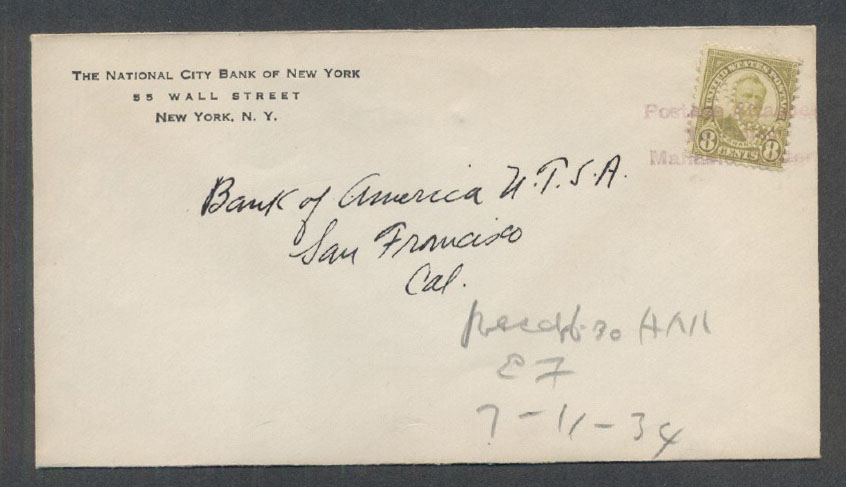 THE NATIONAL CITY BANK OF NEW YORK
55 WALL STREET
NEW YORK, N. Y.
UNITED STATES POSTAGE
8 CENTS 8
Bank of America N.T.S.A.
San Francisco
Cal.
7-11-34